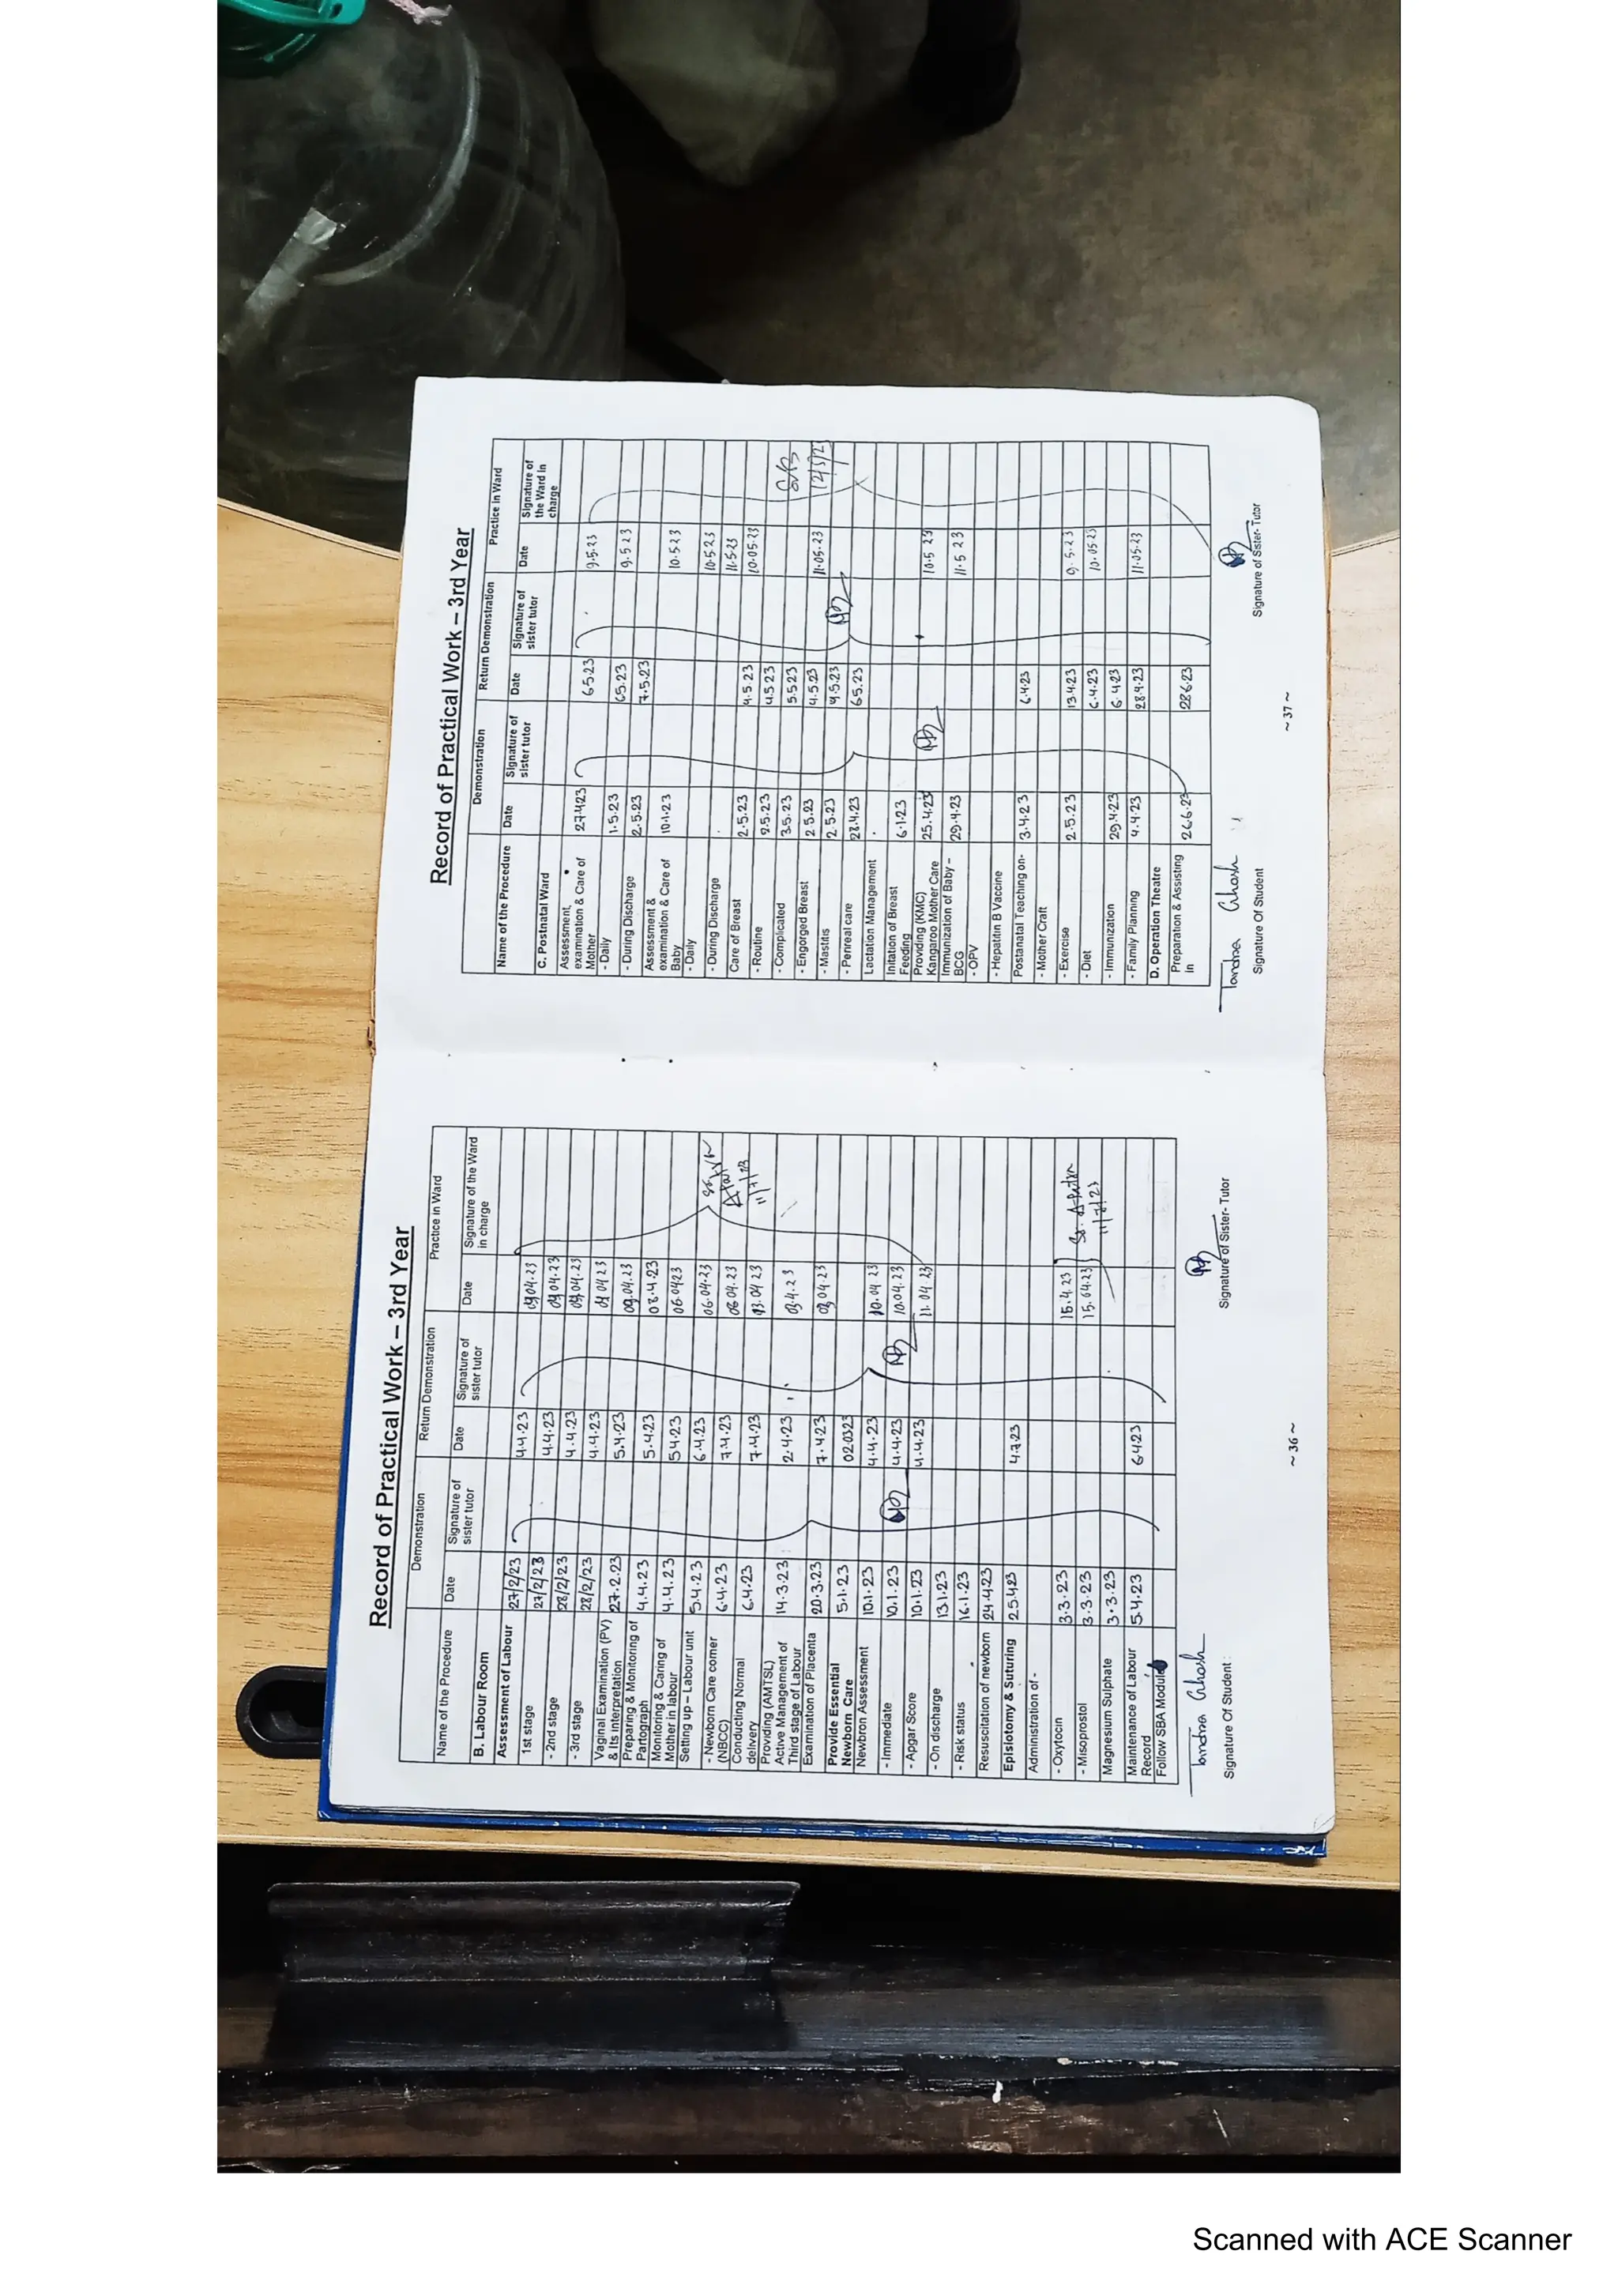 Record of Practical Work – 3rd Year
Name of the Procedure Demonstration Return Demonstration Practice in Ward
Date Signature of sister tutor Date Signature of sister tutor Date Signature of the Ward in charge
B. Labour Room
Assessment of Labour
1st stage 27/2/23 4.4.23 04.23
- 2nd stage 27/2/23 4.4.23 04.23
- 3rd stage 28/2/23 4.4.23 04.23
Vaginal Examination (PV) & Its Interpretation 28/2/23 4.4.23 04 23
Preparing & Monitoring of Partograph 27.2.23 5.4.23 09.04.23
Monitoring & Caring of Mother in labour 4.4.23 5.4.23 08.4.23
Setting up – Labour unit 4.4.23 5 4.23 06.04.23
- Newborn Care corner (NBCC) 5.4.23 6.4.23 06.04.23
Conducting Normal delivery 6.4.23 7.4.23 04.23
Providing (AMTSL) Active Management of Third stage of Labour 6.4.23 7.4.23 04 23
Examination of Placenta 14.3.23 2.4.23 4.23
Provide Essential Newborn Care 20.3.23 7.4.23 04.23
Newbron Assessment 5.1.23 02.03.23
- Immediate 10.1.23 4.4.23 10.04 23
- Apgar Score 10.1.23 4.4.23 10.04.23
- On discharge 10.1.23 4.4.23 11.04.23
- Risk status 13.1.23
16.1.23
Resuscitation of newborn 24.4.23
Episiotomy & Suturing 25.4.23 4.7.23
Administration of -
- Oxytocin 3.3.23 15.4.23
- Misoprostol 3.3.23 15.04.23 11/7/23
Magnesium Sulphate 3.3.23
Maintenance of Labour Record 5.4.23 6.4.23
Follow SBA Module
Tandra Ghosh
Signature Of Student : Signature of Sister- Tutor
~ 36 ~
Record of Practical Work – 3rd Year
Name of the Procedure Demonstration Return Demonstration Practice in Ward
Date Signature of sister tutor Date Signature of sister tutor Date Signature of the Ward in charge
C. Postnatal Ward
Assessment, examination & Care of Mother 27.4.23 6.5.23 9.5.23
- Daily 1.5.23 6.5.23 9.5.23
- During Discharge 2.5.23 7.5.23
Assessment & examination & Care of Baby 10.1.23 10.5.23
- Daily
- During Discharge 10.5.23
Care of Breast 2.5.23 4.5.23 11.5.23
- Routine 2.5.23 4.5.23 10.05.23
- Complicated 3.5.23 5.5.23
- Engorged Breast 2.5.23 4.5.23 11.05.23
- Mastitis 2.5.23 4.5.23
- Perineal care 28.4.23 6.5.23
Lactation Management
Initation of Breast Feeding 6.1.23
Providing (KMC) Kangaroo Mother Care 25.4.23 10.5 23
Immunization of Baby – BCG 29.4.23 11.5 23
- OPV
- Hepatitin B Vaccine
Postanatal Teaching on- 3.4.23 6.4.23
- Mother Craft
- Exercise 2.5.23 13.4.23 9.5.23
- Diet 6.4.23 10.05.23
- Immunization 29.4.23 6.4.23
- Family Planning 4.4.23 28.4.23 11.05.23
D. Operation Theatre
Preparation & Assisting in 26.6.23 28.6.23
Tandra Ghosh
Signature Of Student Signature of Sister- Tutor
~ 37 ~
Scanned with ACE Scanner